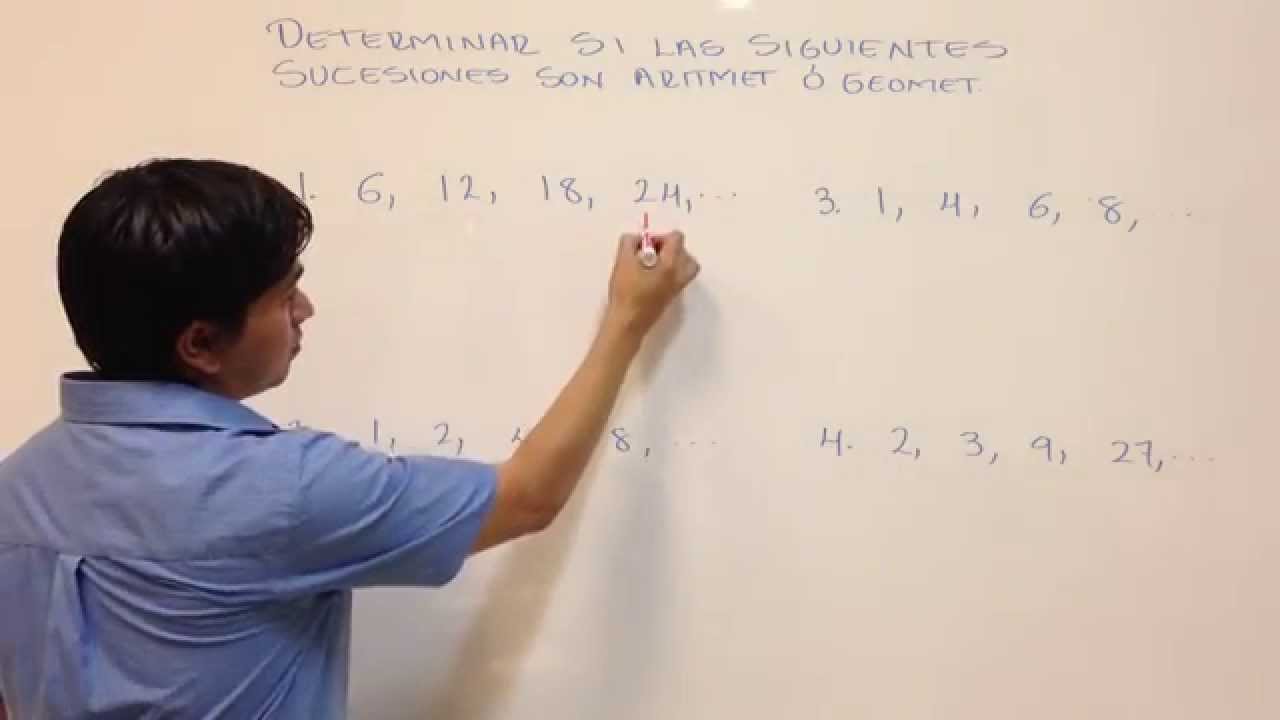 DETERMINAR SI LAS SIGUIENTES
SUCESIONES SON ARITMET Ó GEOMET.
1. 6, 12, 18, 24, ...
3. 1, 4, 6, 8, ...
1, 2, 8, ...
4. 2, 3, 9, 27, ...